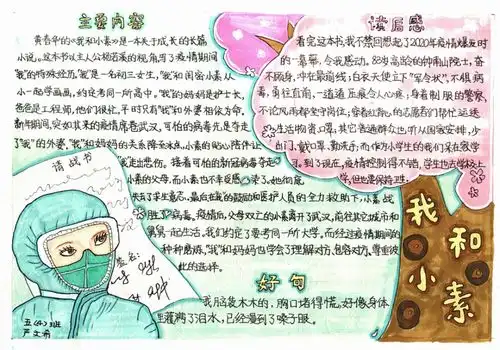 主要内容
黄春华的《我和小素》是一本关于成长的长篇
小说。这本书以主人公杨若溪的视角写了疫情期间
"我"的特殊经历。"我"是一名初三女生,"我"和闺密小素从
小一起学画画,约定考同一所高中。"我"的妈妈是护士长,
爸爸是工程师,他们很忙,平时只有"我"和外婆相依为命。
新年期间,突如其来的疫情席卷武汉,可怕的病毒先是夺走
了"我"的外婆,"我"和妈妈的关系降至冰点,小素的贴心陪伴让
"我"走出悲伤。接着可怕的新冠病毒夺走了
小素的父母,而小素也不幸感染了。她彻底
失去了求生意志,最后在我的鼓励和医护人员的全力救助下,小素战
胜了病毒。疫情后,父母双亡的小素离开了武汉,前往其它城市和
舅舅一起生活,我们约定了要考同一所大学,而经过疫情期间的
种种磨炼,"我"和妈妈也学会了理解对方,包容对方,尊重彼
此的选择。
读后感
看完这本书,我不禁回想起了2020年疫情爆发时
的一幕幕,令我感动。83岁高龄的钟南山院士,奋
不顾身,冲在最前线;白衣天使立下"军令状",不惧病
毒,勇往直前,一道道压痕令人心疼;身着制服的警察,
不论风雨都坚守岗位;穿着红背心的志愿者们帮忙运送
生活物资、口罩,其它普通群众也听从国家安排,少
出门,戴口罩,勤洗手;而作为小学生的我们呆在家学
习。到了现在,疫情控制得不错,学生也去学校上
学,但也要保持卫生。
请战书
签名:
好句
我脑袋木木的,胸口堵得慌。好像身体
里灌满了泪水,已经漫到了嗓子眼。
我和
小素
五(4)班